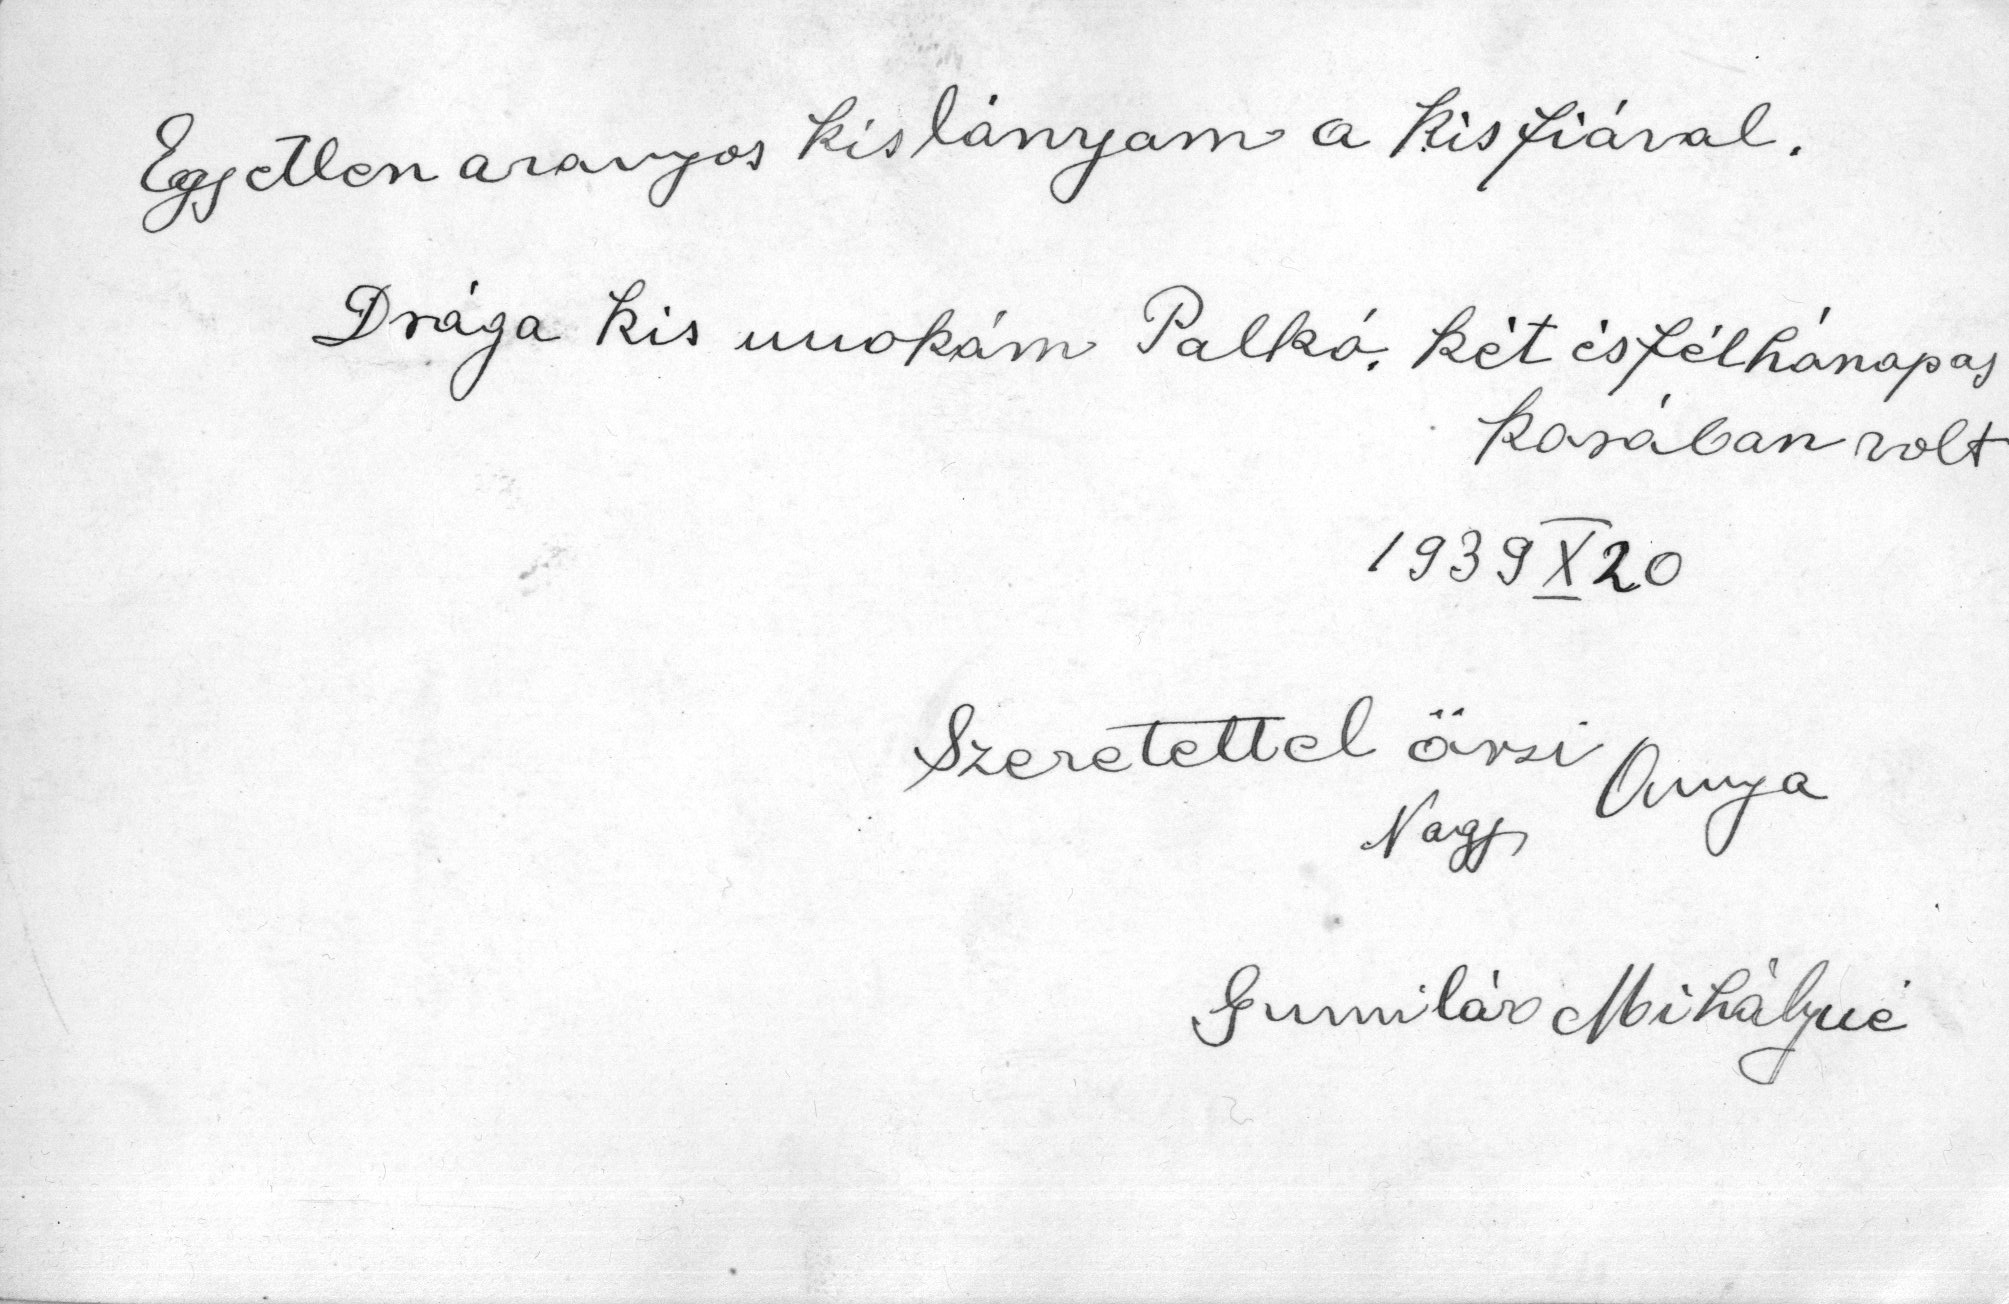 Egyetlen aranyos kislányam a kisfiával.
Drága kis unokám Palkó. két és félhónapos
korában volt
1939 X 20
Szeretettel őrzi Anya
Nagy
Mihályné